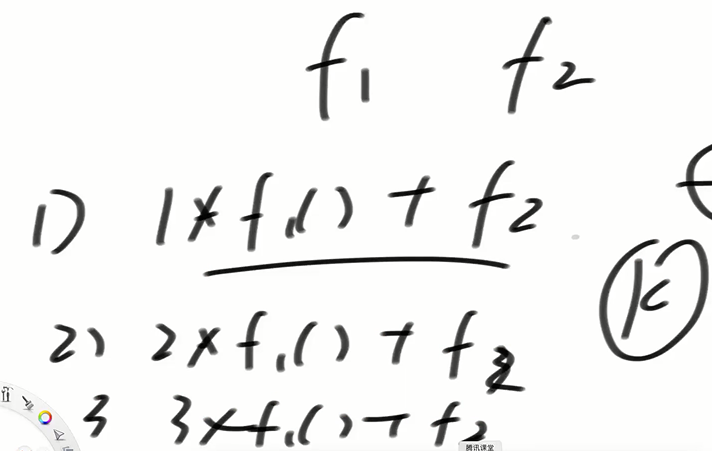 f1 f2
1) 1×f1() + f2
K
2) 2×f1() + f2
3 3×f1() + f2
腾讯课堂